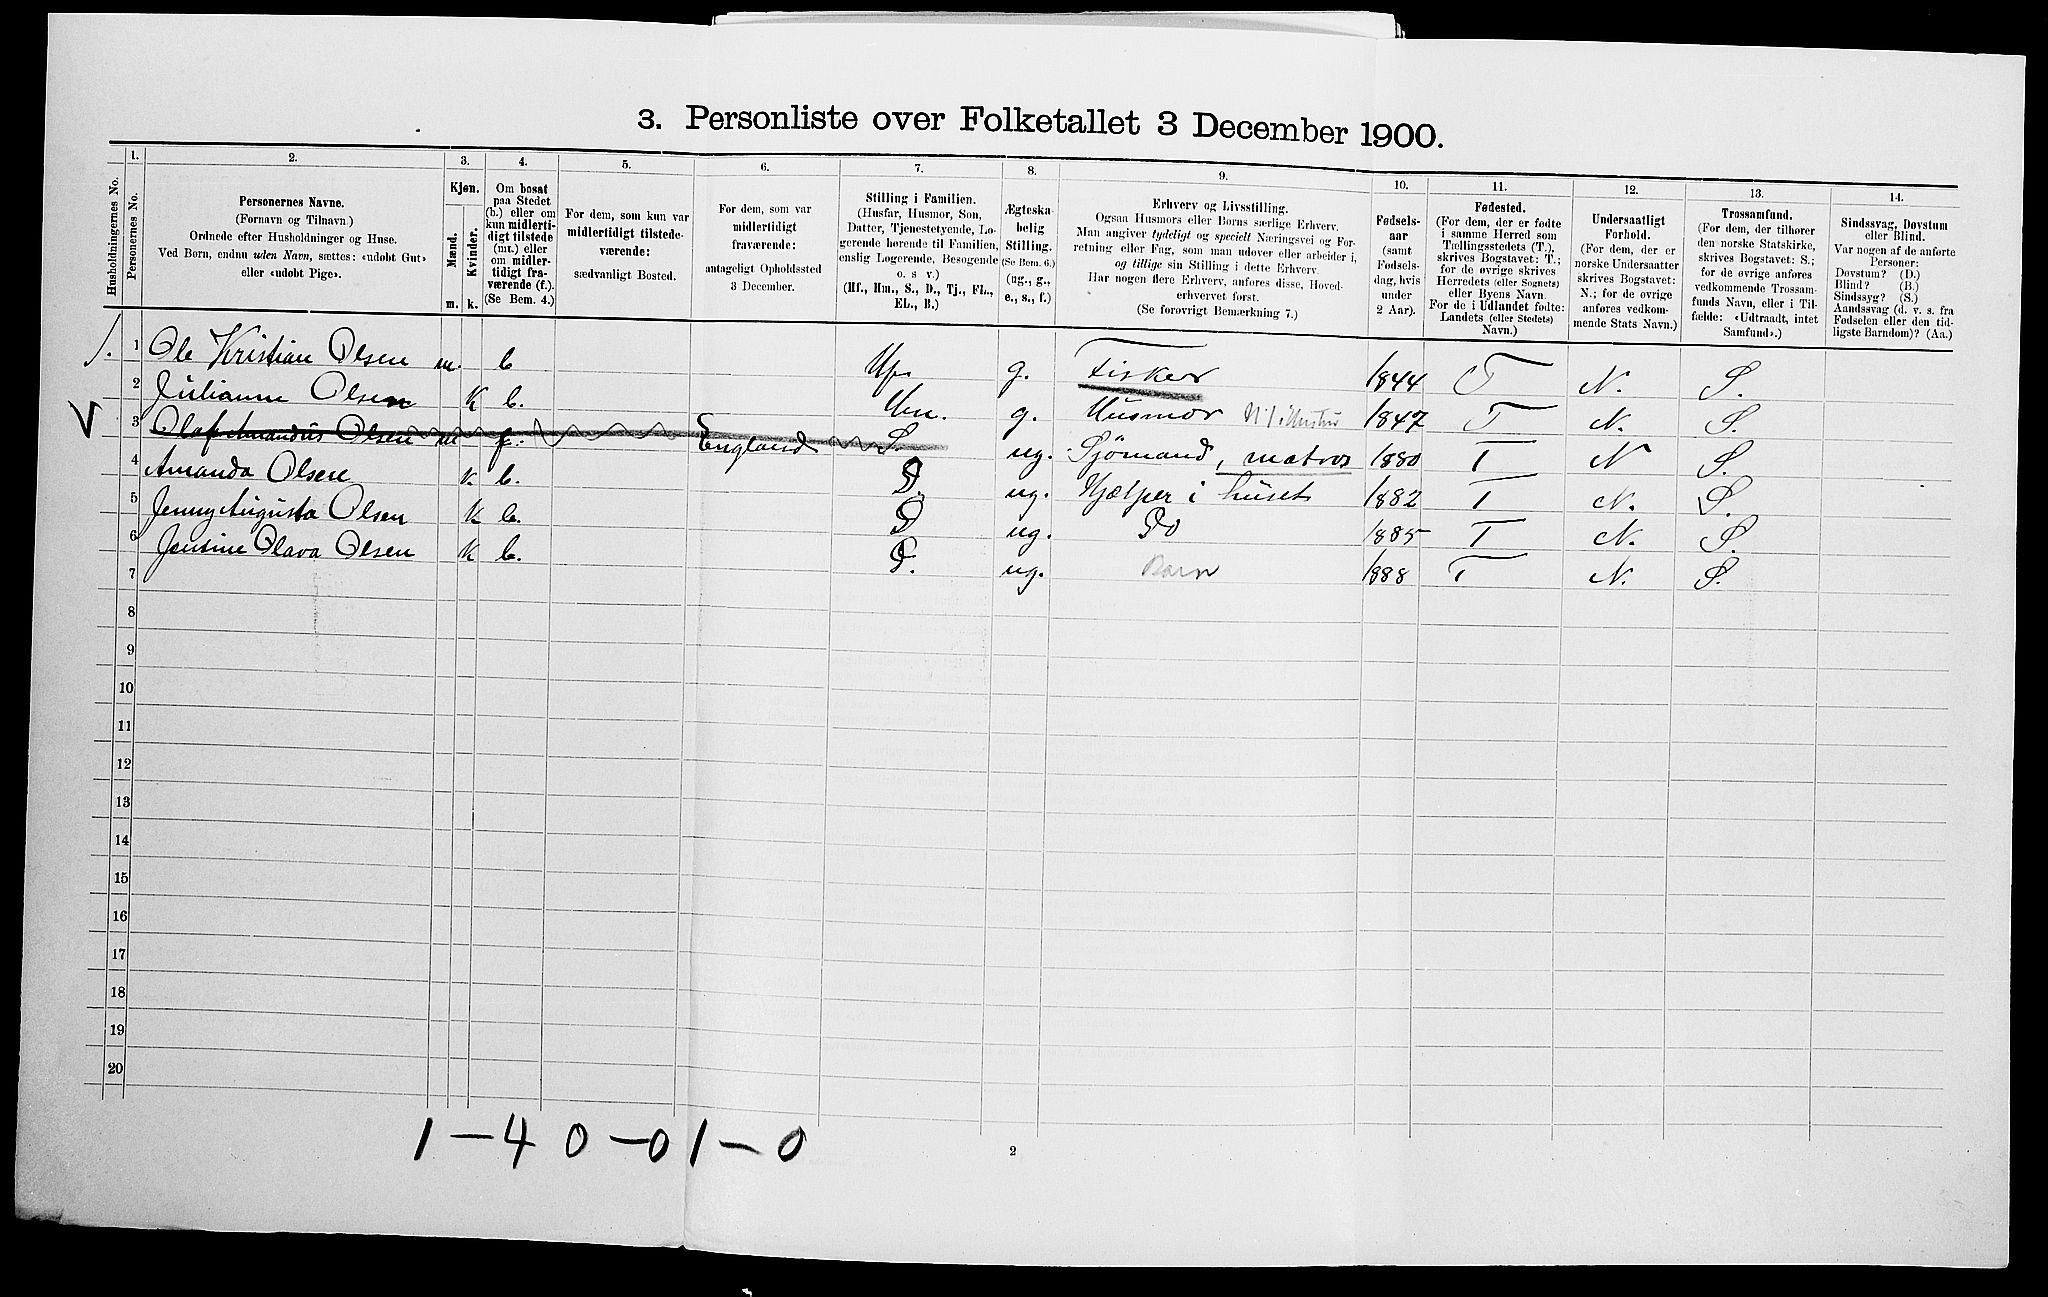 3. Personliste over Folketallet 3 December 1900.
1. 2. 3. 4. 5. 6. 7. 8. 9. 10. 11. 12. 13. 14.
Husholdningernes No.
Personernes No.
Personernes Navne.
(Fornavn og Tilnavn.)
Ordnede efter Husholdninger og Huse.
Ved Børn, endnu uden Navn, sættes: «udøbt Gut»
eller «udøbt Pige».
Kjøn.
Mænd.
Kvinder.
m. k.
Om bosat
paa Stedet
(b.) eller om
kun midlerti-
digt tilstede
(mt.) eller
om midler-
tidigt fra-
værende (f.).
(Se Bem. 4.)
For dem, som kun var
midlertidigt tilstede-
værende:
sædvanligt Bosted.
For dem, som var
midlertidigt
fraværende:
antageligt Opholdssted
3 December.
Stilling i Familien.
(Husfar, Husmor, Søn,
Datter, Tjenestetyende, Lo-
gerende hørende til Familien,
enslig Logerende, Besøgende
o. s v.)
(Hf., Hm., S., D., Tj., FL.,
EL., B.)
Ægteska-
belig
Stilling.
(Se Bem. 6.)
(ug., g.,
e., s., f.)
Erhverv og Livsstilling.
Ogsaa Husmors eller Børns særlige Erhverv.
Man angiver tydeligt og specielt Næringsvei og For-
retning eller Fag, som man udøver eller arbeider i,
og tillige sin Stilling i dette Erhverv.
Har nogen flere Erhverv, anføres disse, Hoved-
erhvervet først.
(Se forøvrigt Bemærkning 7.)
Fødsels-
aar
(samt
Fødsels-
dag, hvis
under
2 Aar).
Fødested.
(For dem, der er fødte
i samme Herred som
Tællingsstedets (T.),
skrives Bogstavet: T.;
for de øvrige skrives
Herredets (eller Sognets)
eller Byens Navn.
For de i Udlandet fødte:
Landets (eller Stedets)
Navn.)
Undersaatligt
Forhold.
(For dem, der er
norske Undersaatter
skrives Bogstavet:
N.; for de øvrige
anføres vedkom-
mende Stats Navn.)
Trossamfund.
(For dem, der tilhører
den norske Statskirke,
skrives Bogstavet: S.;
for de øvrige anføres
vedkommende Trossam-
funds Navn, eller i Til-
fælde: «Udtraadt, intet
Samfund».)
Sindssvag, Døvstum
eller Blind.
Var nogen af de anførte
Personer:
Døvstum? (D.)
Blind? (B.)
Sindssyg? (S.)
Aandssvag (d. v. s. fra
Fødselen eller den tid-
ligste Barndom)? (Aa.)
1. 1 Ole Kristian Olsen m. b Hf. g. Fisker 1844 T N. S.
2 Julianne Olsen K b. Hm. g. Husmor 1847 T N. S.
V 3 Olaf Amandus Olsen m f. England S. ug. Sjömand, matros 1880 T N S.
4 Amanda Olsen K. b. D. ug. Hjælper i huset 1882 T N. S.
5 Jenny Augusta Olsen K b. D ug. Do 1885 T N. S.
6 Jentine Olava Olsen K b. D. ug. Barn 1888 T N. S.
7
8
9
10
11
12
13
14
15
16
17
18
19
20
1 – 4 0 – 0 1 – 0
2